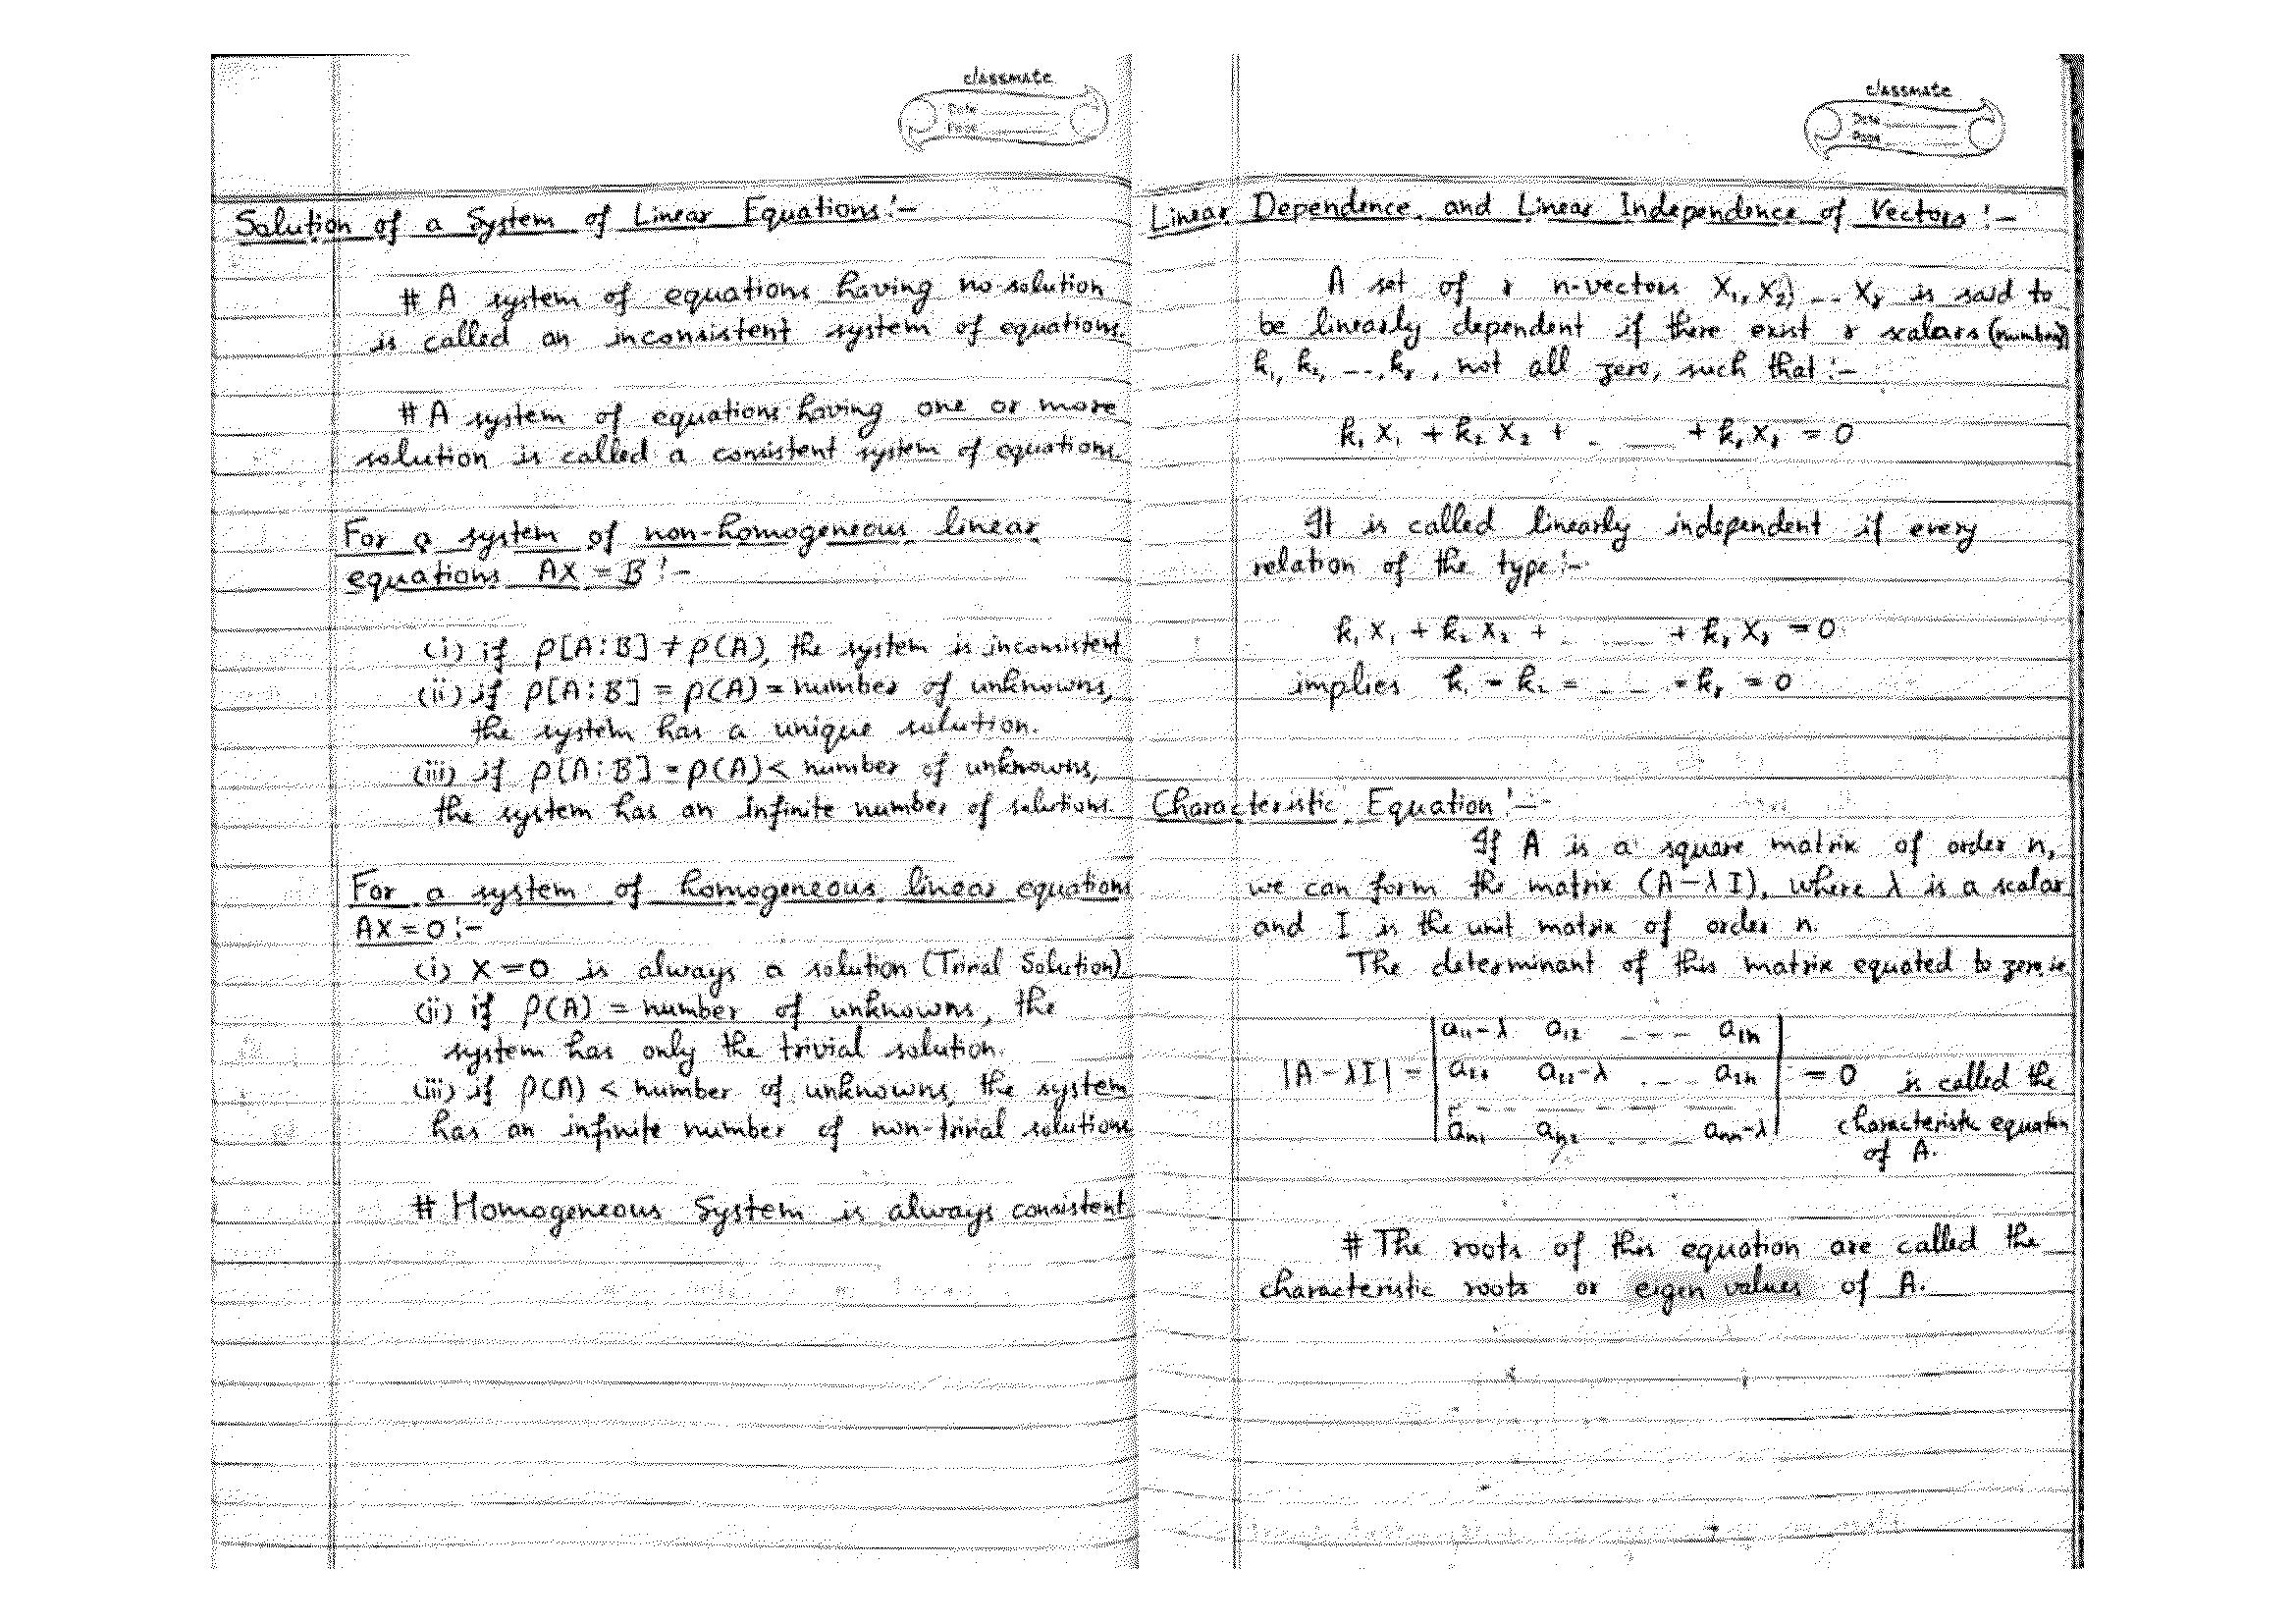 classmate
Date
Page
Solution of a System of Linear Equations :-
# A system of equations having no solution
is called an inconsistent system of equations.
# A system of equations having one or more
solution is called a consistent system of equations.
For a system of non-homogeneous linear
equations AX = B :-
(i) if ρ[A:B] ≠ ρ(A), the system is inconsistent
(ii) if ρ[A:B] = ρ(A) = number of unknowns,
the system has a unique solution.
(iii) if ρ[A:B] = ρ(A) < number of unknowns,
the system has an infinite number of solutions.
For a system of homogeneous linear equations
AX = 0 :-
(i) X = 0 is always a solution (Trivial Solution)
(ii) if ρ(A) = number of unknowns, the
system has only the trivial solution.
(iii) if ρ(A) < number of unknowns, the system
has an infinite number of non-trivial solutions
# Homogeneous System is always consistent
classmate
Date
Page
Linear Dependence and Linear Independence of Vectors :-
A set of r n-vectors X₁, X₂, -- Xᵣ is said to
be linearly dependent if there exist r scalars (numbers)
k₁, k₂, --, kᵣ, not all zero, such that :-
k₁X₁ + k₂X₂ + - -- + kᵣXᵣ = 0
It is called linearly independent if every
relation of the type :-
k₁X₁ + k₂X₂ + - -- + kᵣXᵣ = 0
implies k₁ = k₂ = - - - = kᵣ = 0
Characteristic Equation :-
If A is a square matrix of order n,
we can form the matrix (A-λI), where λ is a scalar
and I is the unit matrix of order n.
The determinant of this matrix equated to zero, ie
a₁₁-λ a₁₂ --- a₁ₙ
|A-λI| = a₂₁ a₂₂-λ --- a₂ₙ = 0 is called the
aₙ₁ aₙ₂ --- aₙₙ-λ characteristic equation
of A.
# The roots of this equation are called the
characteristic roots or eigen values of A.